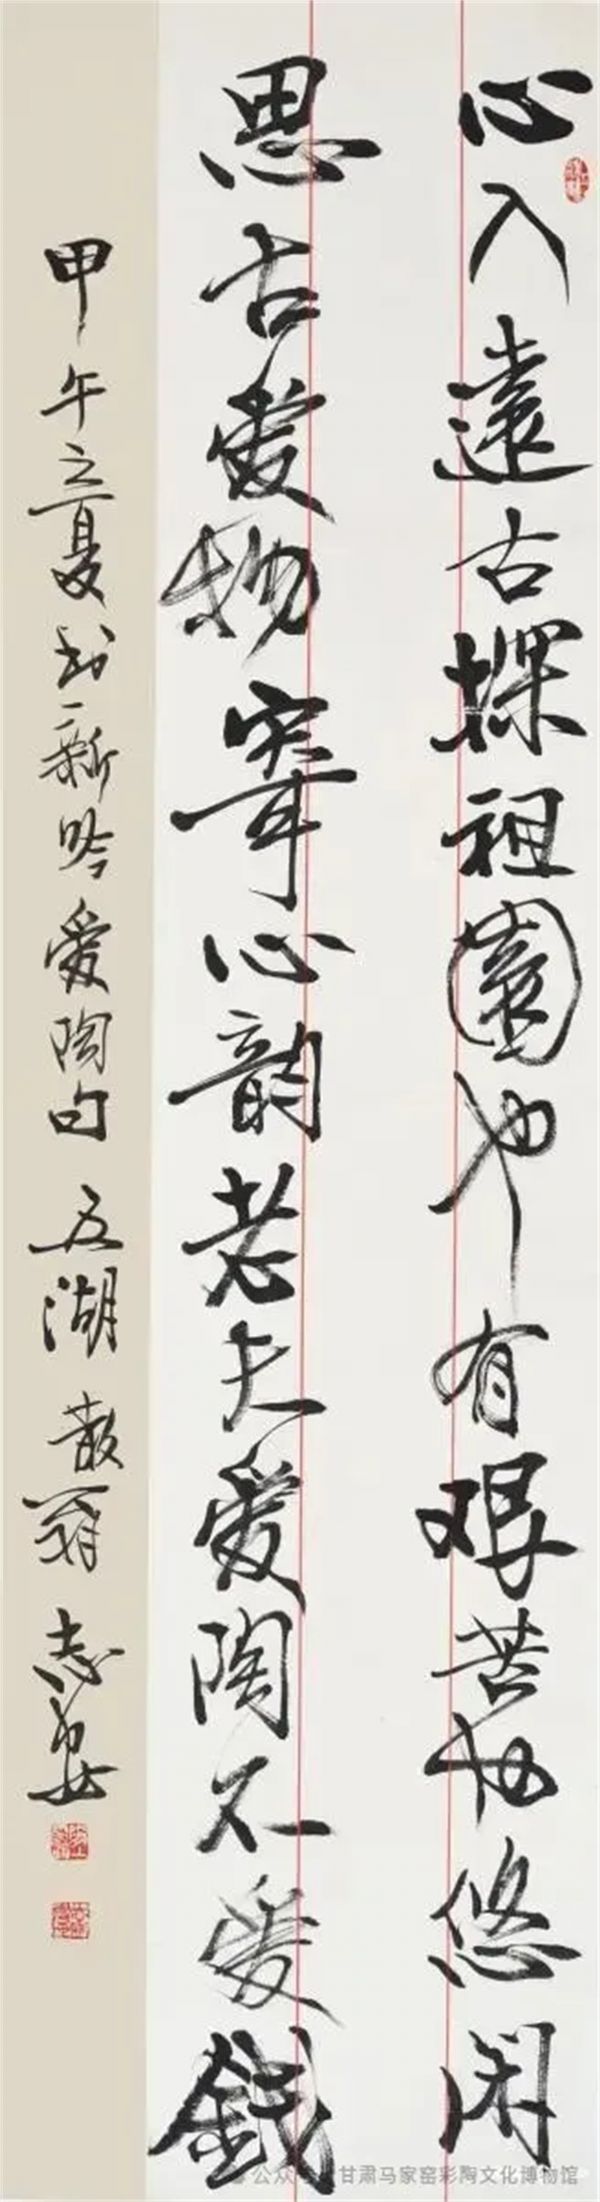 心入遠古探祖園也有艱苦也悠闲
思古愛物心韵老夫愛陶不爱錢
甲午之夏书新吟爱陶句 五湖散翁 志
公众号 甘肃马家窑彩陶文化博物馆